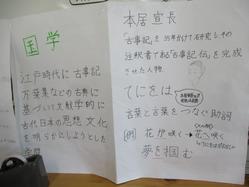 国学
江戸時代に古事記
万葉集などの古典に
基づいて文献学的に
古代日本の思想、文化
を明らかにしようとした
学問
本居宣長
「古事記」を35年かけて研究し、その
注釈書である「古事記伝」を完成
させた人物
てにをは
言葉と言葉をつなぐ助詞
(例) 花が咲く → 花へ咲く
夢を掴む